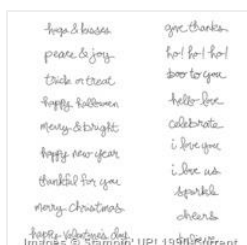 hugs & kisses
peace & joy
trick or treat
happy halloween
merry & bright
happy new year
thankful for you
merry christmas
happy valentine's day
give thanks
ho! ho! ho!
boo to you
hello love
celebrate
i love you
i love us
sparkle
cheers
believe
Images © Stampin' UP! 1990-current